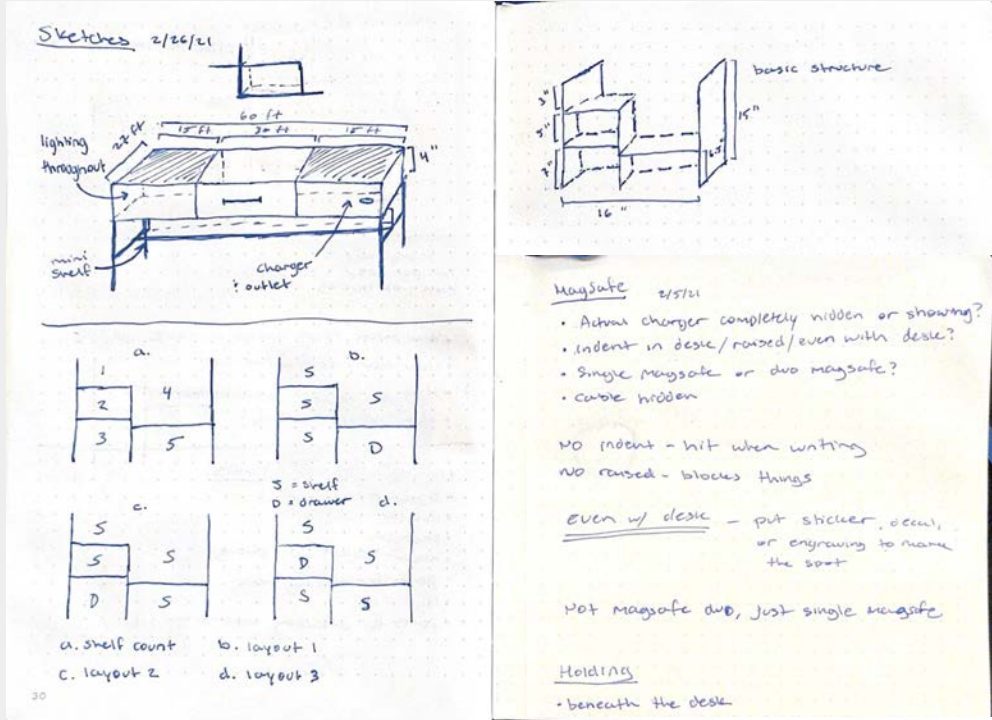 Sketches 2/26/21
60 ft
15 ft 30 ft 15 ft
4"
lighting
throughout
mini
shelf
charger
+ outlet
a.
1
2
3
4
5
b.
S
S
S
S
D
S = shelf
D = drawer
c.
S
S
D
S
S
d.
S
D
S
S
S
a. shelf count b. layout 1
c. layout 2 d. layout 3
30
basic structure
3"
5"
7"
15"
16"
MagSafe 2/5/21
• Actual charger completely hidden or showing?
• Indent in desk/raised/even with desk?
• Single MagSafe or duo MagSafe?
• cable hidden
No indent - hit when writing
No raised - blocks things
even w/ desk - put sticker, decal,
or engraving to make
the spot
Not MagSafe duo, just single MagSafe
Holding
• beneath the desk